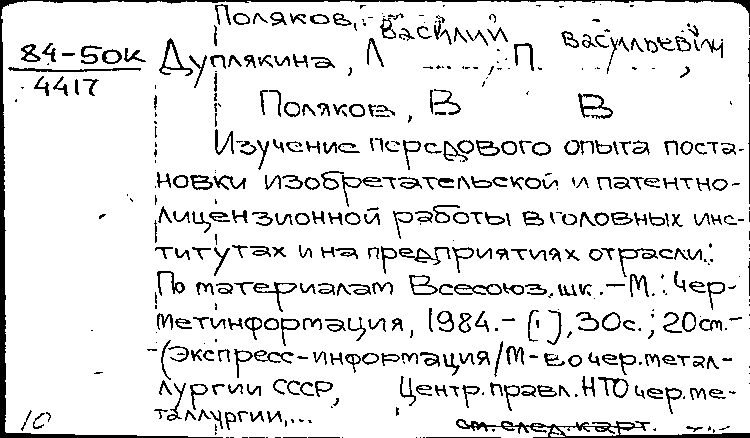 Поляков, Василий Васильевич
84-5ОК
4417
Дуплякина, Л ....., П. ...., 
Поляков, В В
Изучение передового опыта поста-
новки изобретательской и патентно-
лицензионной работы в головных инс-
титутах и на предприятиях отрасли:
По материалам Всесоюз. шк. – М.: Чер-
метинформация, 1984. – [1], 30с.; 20см. –
– (Экспресс-информация/М-во чер. метал-
лургии СССР, Центр. правл. НТО чер. ме-
таллургии,...
см. след. карт.
10